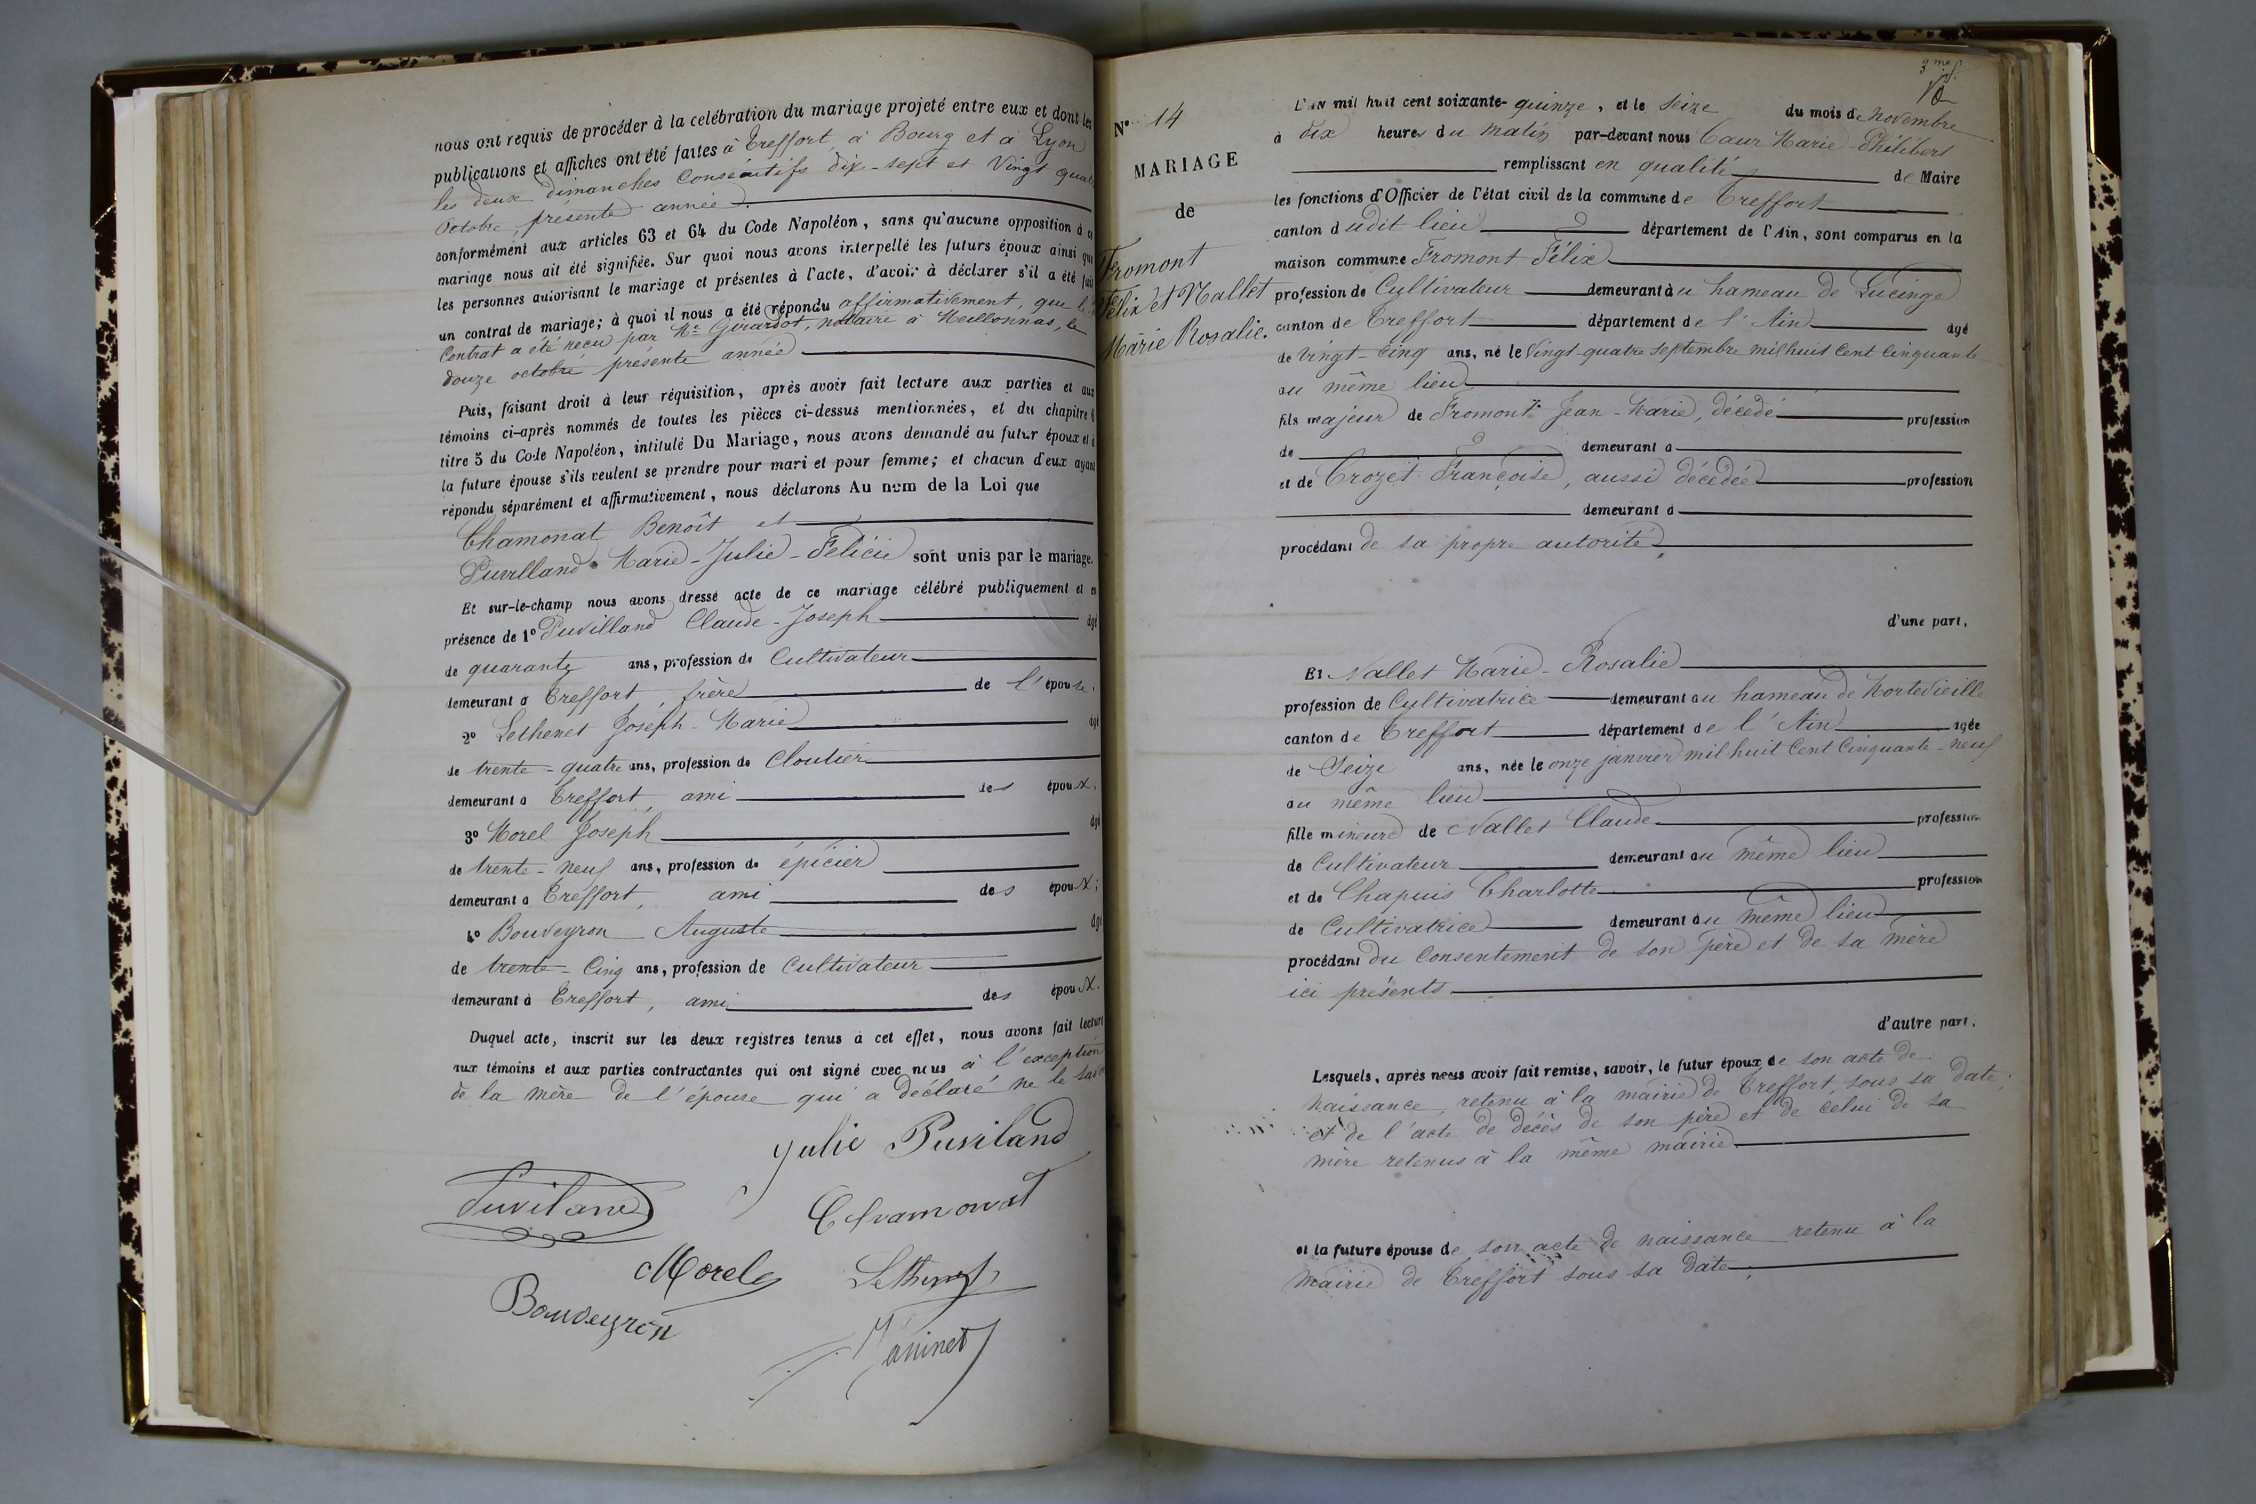 nous ont requis de procéder à la celébration du mariage projeté entre eux et dont les
publications et affiches ont été faites à Treffort, à Bourg et à Lyon
les deux dimanches consécutifs dix-sept et vingt quatre
octobre, présente année
conformément aux articles 63 et 64 du Code Napoléon, sans qu'aucune opposition à ce
mariage nous ait été signifiée. Sur quoi nous avons interpellé les futurs époux ainsi que
les personnes autorisant le mariage et présentes à l'acte, d'avoir à déclarer s'il a été fait
un contrat de mariage; à quoi il nous a été répondu affirmativement, que le
contrat a été reçu par Me Girardot, notaire à Meillonnas, le
douze octobre présente année
Puis, faisant droit à leur réquisition, après avoir fait lecture aux parties et aux
témoins ci-après nommés de toutes les pièces ci-dessus mentionnées, et du chapitre 6
titre 5 du Code Napoléon, intitulé Du Mariage, nous avons demandé au futur époux et à
la future épouse s'ils veulent se prendre pour mari et pour femme; et chacun d'eux ayant
répondu séparément et affirmativement, nous déclarons Au nom de la Loi que
Chamonat Benoît et
Puvilland Marie-Julie-Félicie sont unis par le mariage.
Et sur-le-champ nous avons dressé acte de ce mariage célébré publiquement et en
présence de 1° Puvilland Claude-Joseph âgé
de quarante ans, profession de Cultivateur
demeurant à Treffort, frère de l'épouse.
2° Lethenet Joseph-Marie âgé
de trente-quatre ans, profession de Cloutier
demeurant à Treffort, ami des époux.
3° Morel Joseph âgé
de trente-neuf ans, profession de épicier
demeurant à Treffort, ami des époux;
4° Bouveyron Auguste âgé
de trente-cinq ans, profession de Cultivateur
demeurant à Treffort, ami des époux.
Duquel acte, inscrit sur les deux registres tenus à cet effet, nous avons fait lecture
aux témoins et aux parties contractantes qui ont signé avec nous à l'exception
de la mère de l'épouse qui a déclaré ne le savoir
Julie Puviland
Puviland
Chamonat
Morel
Lethenet
Bouveyron
Janinet
3me
N° 14
MARIAGE
de
Fromont
Félix et Nallet
Marie Rosalie.
L'AN mil huit cent soixante-quinze, et le seize du mois de novembre
à dix heures du matin par-devant nous Caur Marie-Philibert
remplissant en qualité de Maire
les fonctions d'Officier de l'état civil de la commune de Treffort
canton dudit lieu département de l'Ain, sont comparus en la
maison commune Fromont Félix
profession de Cultivateur demeurant au hameau de Lucinge
canton de Treffort département de l'Ain âgé
de vingt-cinq ans, né le vingt-quatre septembre mil huit cent cinquante
au même lieu
fils majeur de Fromont Jean-Marie, décédé profession
de demeurant à
et de Crozet Françoise, aussi décédée profession
demeurant à
procédant de sa propre autorité
d'une part.
Et Nallet Marie-Rosalie
profession de Cultivatrice demeurant au hameau de Mortevieille
canton de Treffort département de l'Ain âgée
de Seize ans, née le onze janvier mil huit cent cinquante-neuf
au même lieu
fille mineure de Nallet Claude profession
de Cultivateur demeurant au même lieu
et de Chapuis Charlotte profession
de Cultivatrice demeurant au même lieu
procédant du consentement de son père et de sa mère
ici présents
d'autre part.
Lesquels, après nous avoir fait remise, savoir, le futur époux de son acte de
naissance, retenu à la mairie de Treffort sous sa date;
et de l'acte de décès de son père et de celui de sa
mère retenus à la même mairie
et la future épouse de son acte de naissance retenu à la
mairie de Treffort sous sa date;